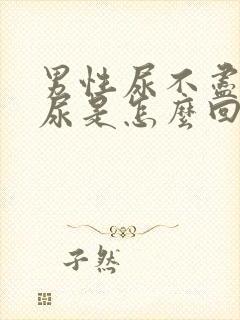 男性尿不盡
尿是怎麼回
子然